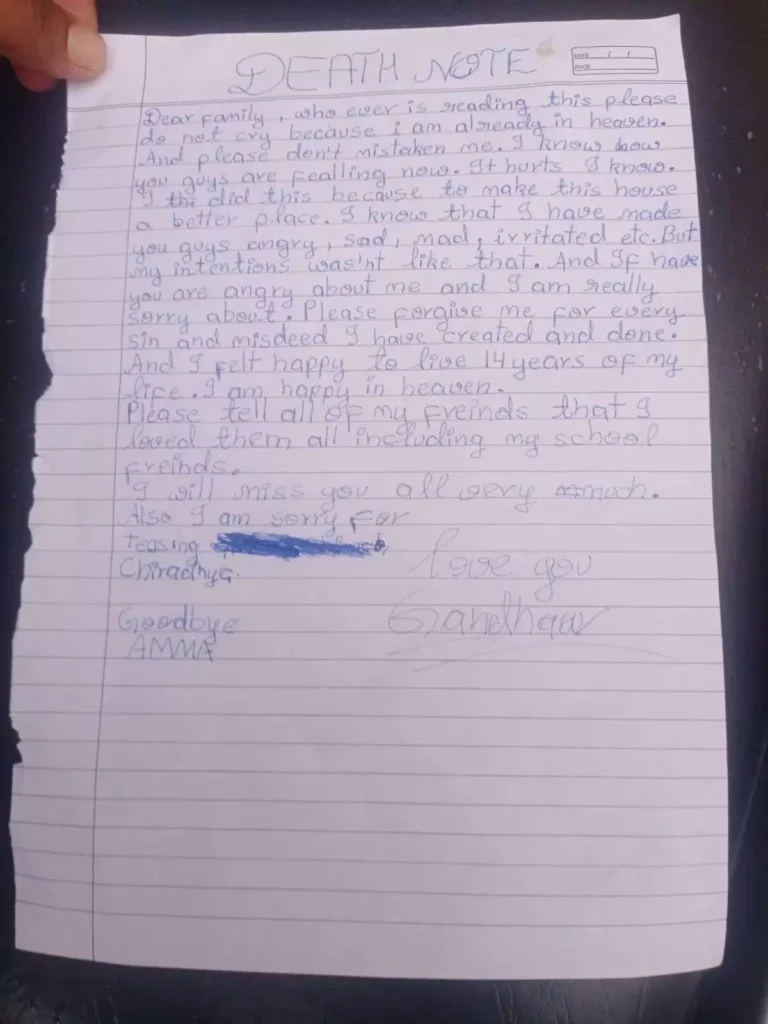 DEATH NOTE
DATE / /
PAGE
Dear family, who ever is reading this please
do not cry because i am already in heaven.
And please don't mistaken me. I know how
you guys are fealling now. It hurts I know.
I did this because to make this house
a better place. I know that I have made
you guys angry, sad, mad, irritated etc. But
my intentions was'nt like that. And If have
you are angry about me and I am really
sorry about. Please forgive me for every
sin and misdeed I have created and done.
And I felt happy to live 14 years of my
life. I am happy in heaven.
Please tell all of my freinds that I
loved them all including my school
freinds.
I will miss you all very much.
Also I am sorry for
Teasing
Chiradhya.
love you
Goodbye
Gandhaar
AMMA